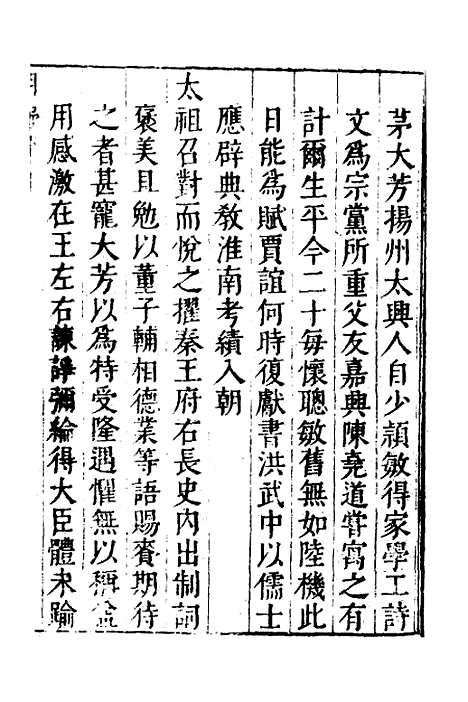 茅大芳揚州太興人自少頴敏得家學工詩
文爲宗黨所重父友嘉興陳堯道甞寄之有
計爾生平今二十每懷聰敏舊無如陸機此
日能爲賦賈誼何時復獻書洪武中以儒士
應辟典敎淮南考績入朝
太祖召對而悅之擢秦王府右長史内出制詞
褒美且勉以董子輔相德業等語賜賚期待
之者甚寵大芳以爲特受隆遇懼無以稱益
用感激在王左右諫諍彌綸得大臣體未踰